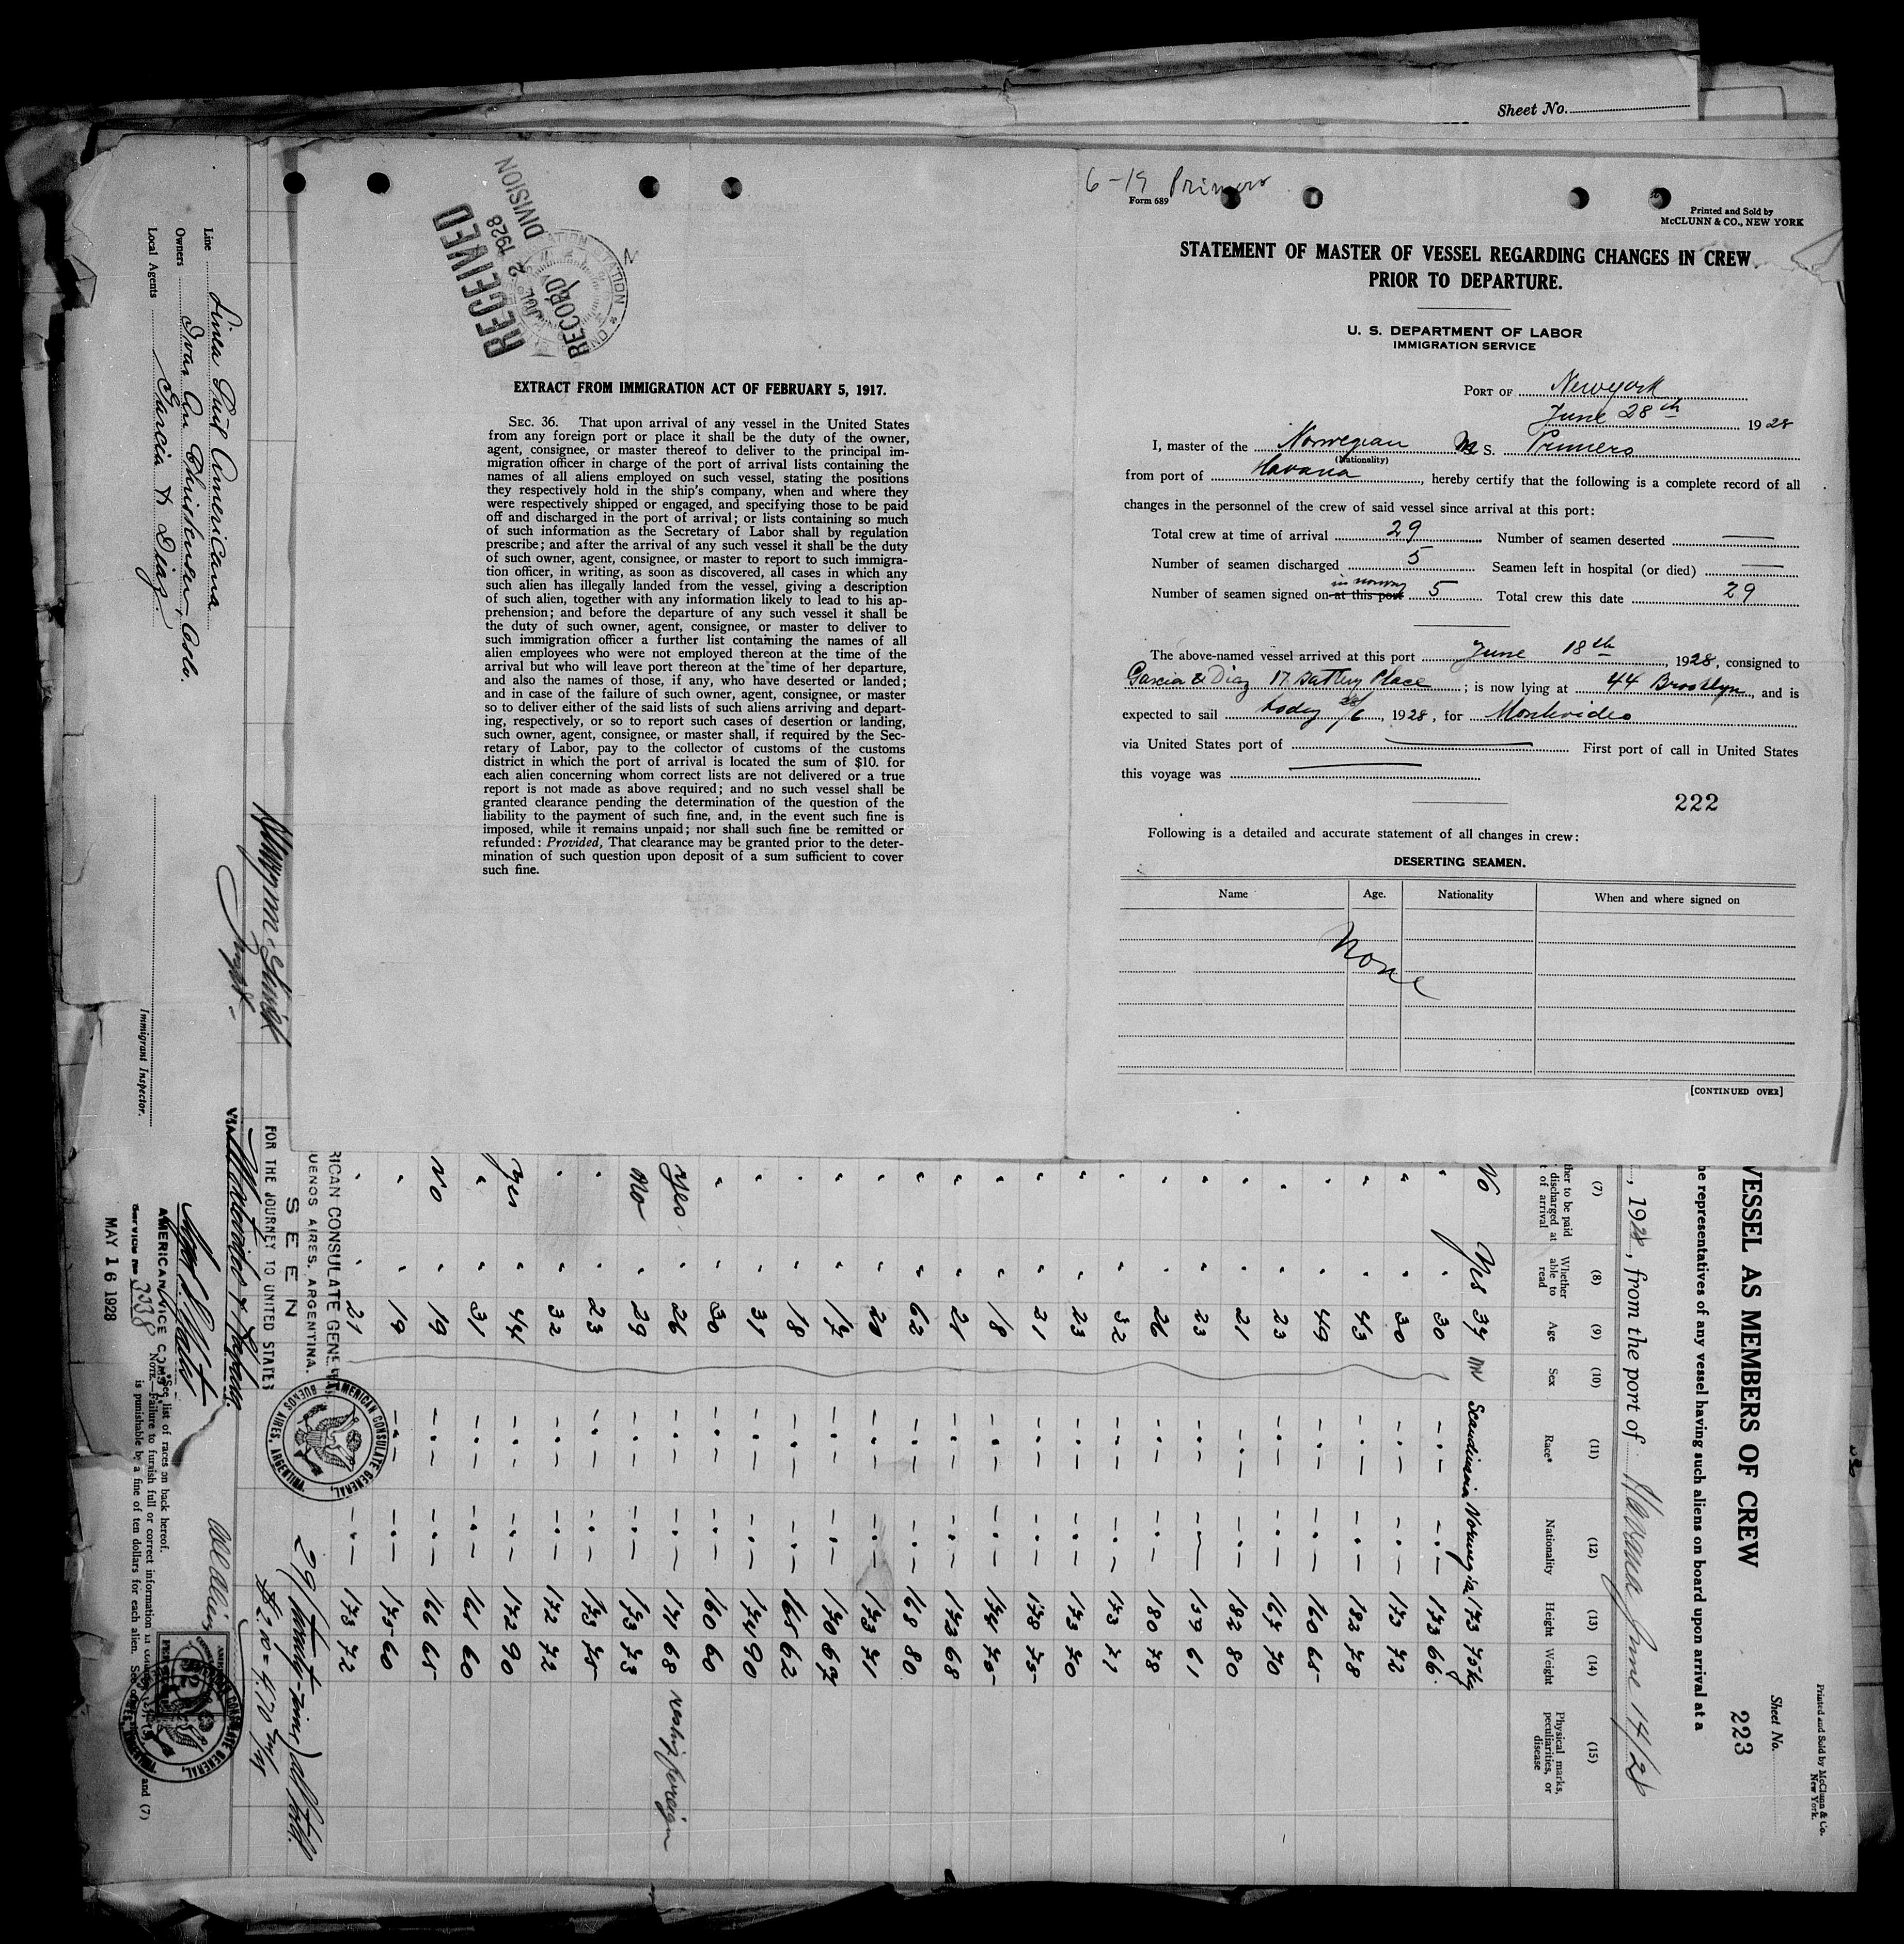 Sheet No.
6-19 Primero
Form 689
Printed and Sold by
McCLUNN & CO., NEW YORK
STATEMENT OF MASTER OF VESSEL REGARDING CHANGES IN CREW
PRIOR TO DEPARTURE.
U. S. DEPARTMENT OF LABOR
IMMIGRATION SERVICE
PORT OF Newyork
June 28th 1928
I, master of the Norwegian M S. Primero
(Nationality)
from port of Havana, hereby certify that the following is a complete record of all
changes in the personnel of the crew of said vessel since arrival at this port:
Total crew at time of arrival 29 Number of seamen deserted —
Number of seamen discharged 5 Seamen left in hospital (or died) —
in norway
Number of seamen signed on at this port 5 Total crew this date 29
The above-named vessel arrived at this port June 18th, 1928, consigned to
Garcia & Diaz 17 Battery Place; is now lying at 44 Brooklyn, and is
expected to sail today 28/6, 1928, for Montevideo
via United States port of — First port of call in United States
this voyage was —
222
Following is a detailed and accurate statement of all changes in crew:
DESERTING SEAMEN.
Name Age. Nationality When and where signed on
None
[CONTINUED OVER]
RECEIVED
JUL 2 1928
RECORD DIVISION
EXTRACT FROM IMMIGRATION ACT OF FEBRUARY 5, 1917.
SEC. 36. That upon arrival of any vessel in the United States
from any foreign port or place it shall be the duty of the owner,
agent, consignee, or master thereof to deliver to the principal im-
migration officer in charge of the port of arrival lists containing the
names of all aliens employed on such vessel, stating the positions
they respectively hold in the ship's company, when and where they
were respectively shipped or engaged, and specifying those to be paid
off and discharged in the port of arrival; or lists containing so much
of such information as the Secretary of Labor shall by regulation
prescribe; and after the arrival of any such vessel it shall be the duty
of such owner, agent, consignee, or master to report to such immigra-
tion officer, in writing, as soon as discovered, all cases in which any
such alien has illegally landed from the vessel, giving a description
of such alien, together with any information likely to lead to his ap-
prehension; and before the departure of any such vessel it shall be
the duty of such owner, agent, consignee, or master to deliver to
such immigration officer a further list containing the names of all
alien employees who were not employed thereon at the time of the
arrival but who will leave port thereon at the time of her departure,
and also the names of those, if any, who have deserted or landed;
and in case of the failure of such owner, agent, consignee, or master
so to deliver either of the said lists of such aliens arriving and depart-
ing, respectively, or so to report such cases of desertion or landing,
such owner, agent, consignee, or master shall, if required by the Sec-
retary of Labor, pay to the collector of customs of the customs
district in which the port of arrival is located the sum of $10. for
each alien concerning whom correct lists are not delivered or a true
report is not made as above required; and no such vessel shall be
granted clearance pending the determination of the question of the
liability to the payment of such fine, and, in the event such fine is
imposed, while it remains unpaid; nor shall such fine be remitted or
refunded: Provided, That clearance may be granted prior to the deter-
mination of such question upon deposit of a sum sufficient to cover
such fine.
Printed and Sold by McClunn & Co.
New York.
Sheet No.
223
VESSEL AS MEMBERS OF CREW
he representatives of any vessel having such aliens on board upon arrival at a
, 1928, from the port of Havana June 14/28
(7) (8) (9) (10) (11) (12) (13) (14) (15)
ther to be paid
discharged at
t of arrival
Whether
able to
read
Age
Sex
Race*
Nationality
Height
Weight
Physical marks,
peculiarities, or
disease
No Yes 39 m Scandinavia Norwegian 173 75kg
" " 30 173 66
" " 30 173 72
" " 43 182 78
" " 49 160 65
" " 23 167 70
" " 21 182 80
" " 23 159 61
" " 26 180 78
" " 32 173 71
" " 23 173 70
" " 21 178 75
" " 18 174 75
" " 21 173 68
" " 62 168 80
" " 20 173 71
" " 17 170 67
" " 18 165 62
" " 31 174 90
" " 30 160 60
Yes " 26 171 68 reship foreign
No " 29 173 73
" " 23 175 75
" " 32 172 72
Yes " 44 172 90
" " 31 165 60
No " 19 166 65
" " 19 175 60
" " 21 173 72
RICAN CONSULATE GENERAL
UENOS AIRES, ARGENTINA.
SEEN
FOR THE JOURNEY TO UNITED STATES
VIA Montevideo & Habana.
AMERICAN CONSULATE GENERAL,
BUENOS AIRES, ARGENTINA
29 (twenty-nine) all told.
AMERICAN VICE CONSUL
Service No 3338
MAY 16 1928
*See list of races on back hereof.
NOTE.—Failure to furnish full or correct information
is punishable by a fine of ten dollars for each alien.
and (7)
Line Linea Sud Americana
Owners Ivar An Christensen, Oslo.
Local Agents Garcia & Diaz
Immigrant Inspector.